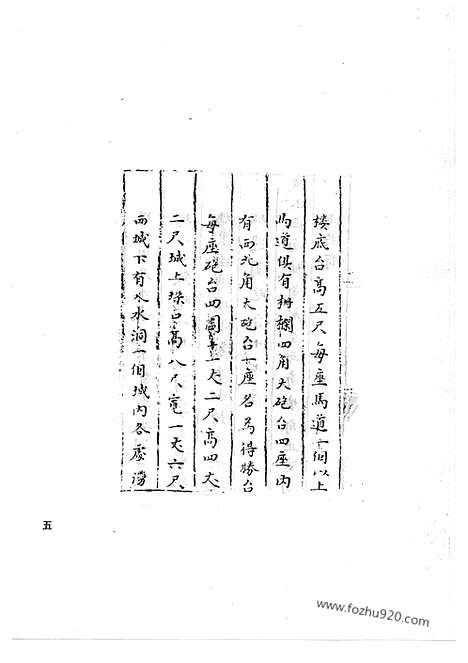 樓底台高五尺每座馬道一個以上
馬道俱有栅欄四角大砲台四座內
有西北角大砲台一座名為得勝台
每座砲台四圍十一丈二尺高四丈
二尺城上垛口高八尺寬一丈六尺
西城下有水洞一個城內各處澇
五
www.fozhu920.com